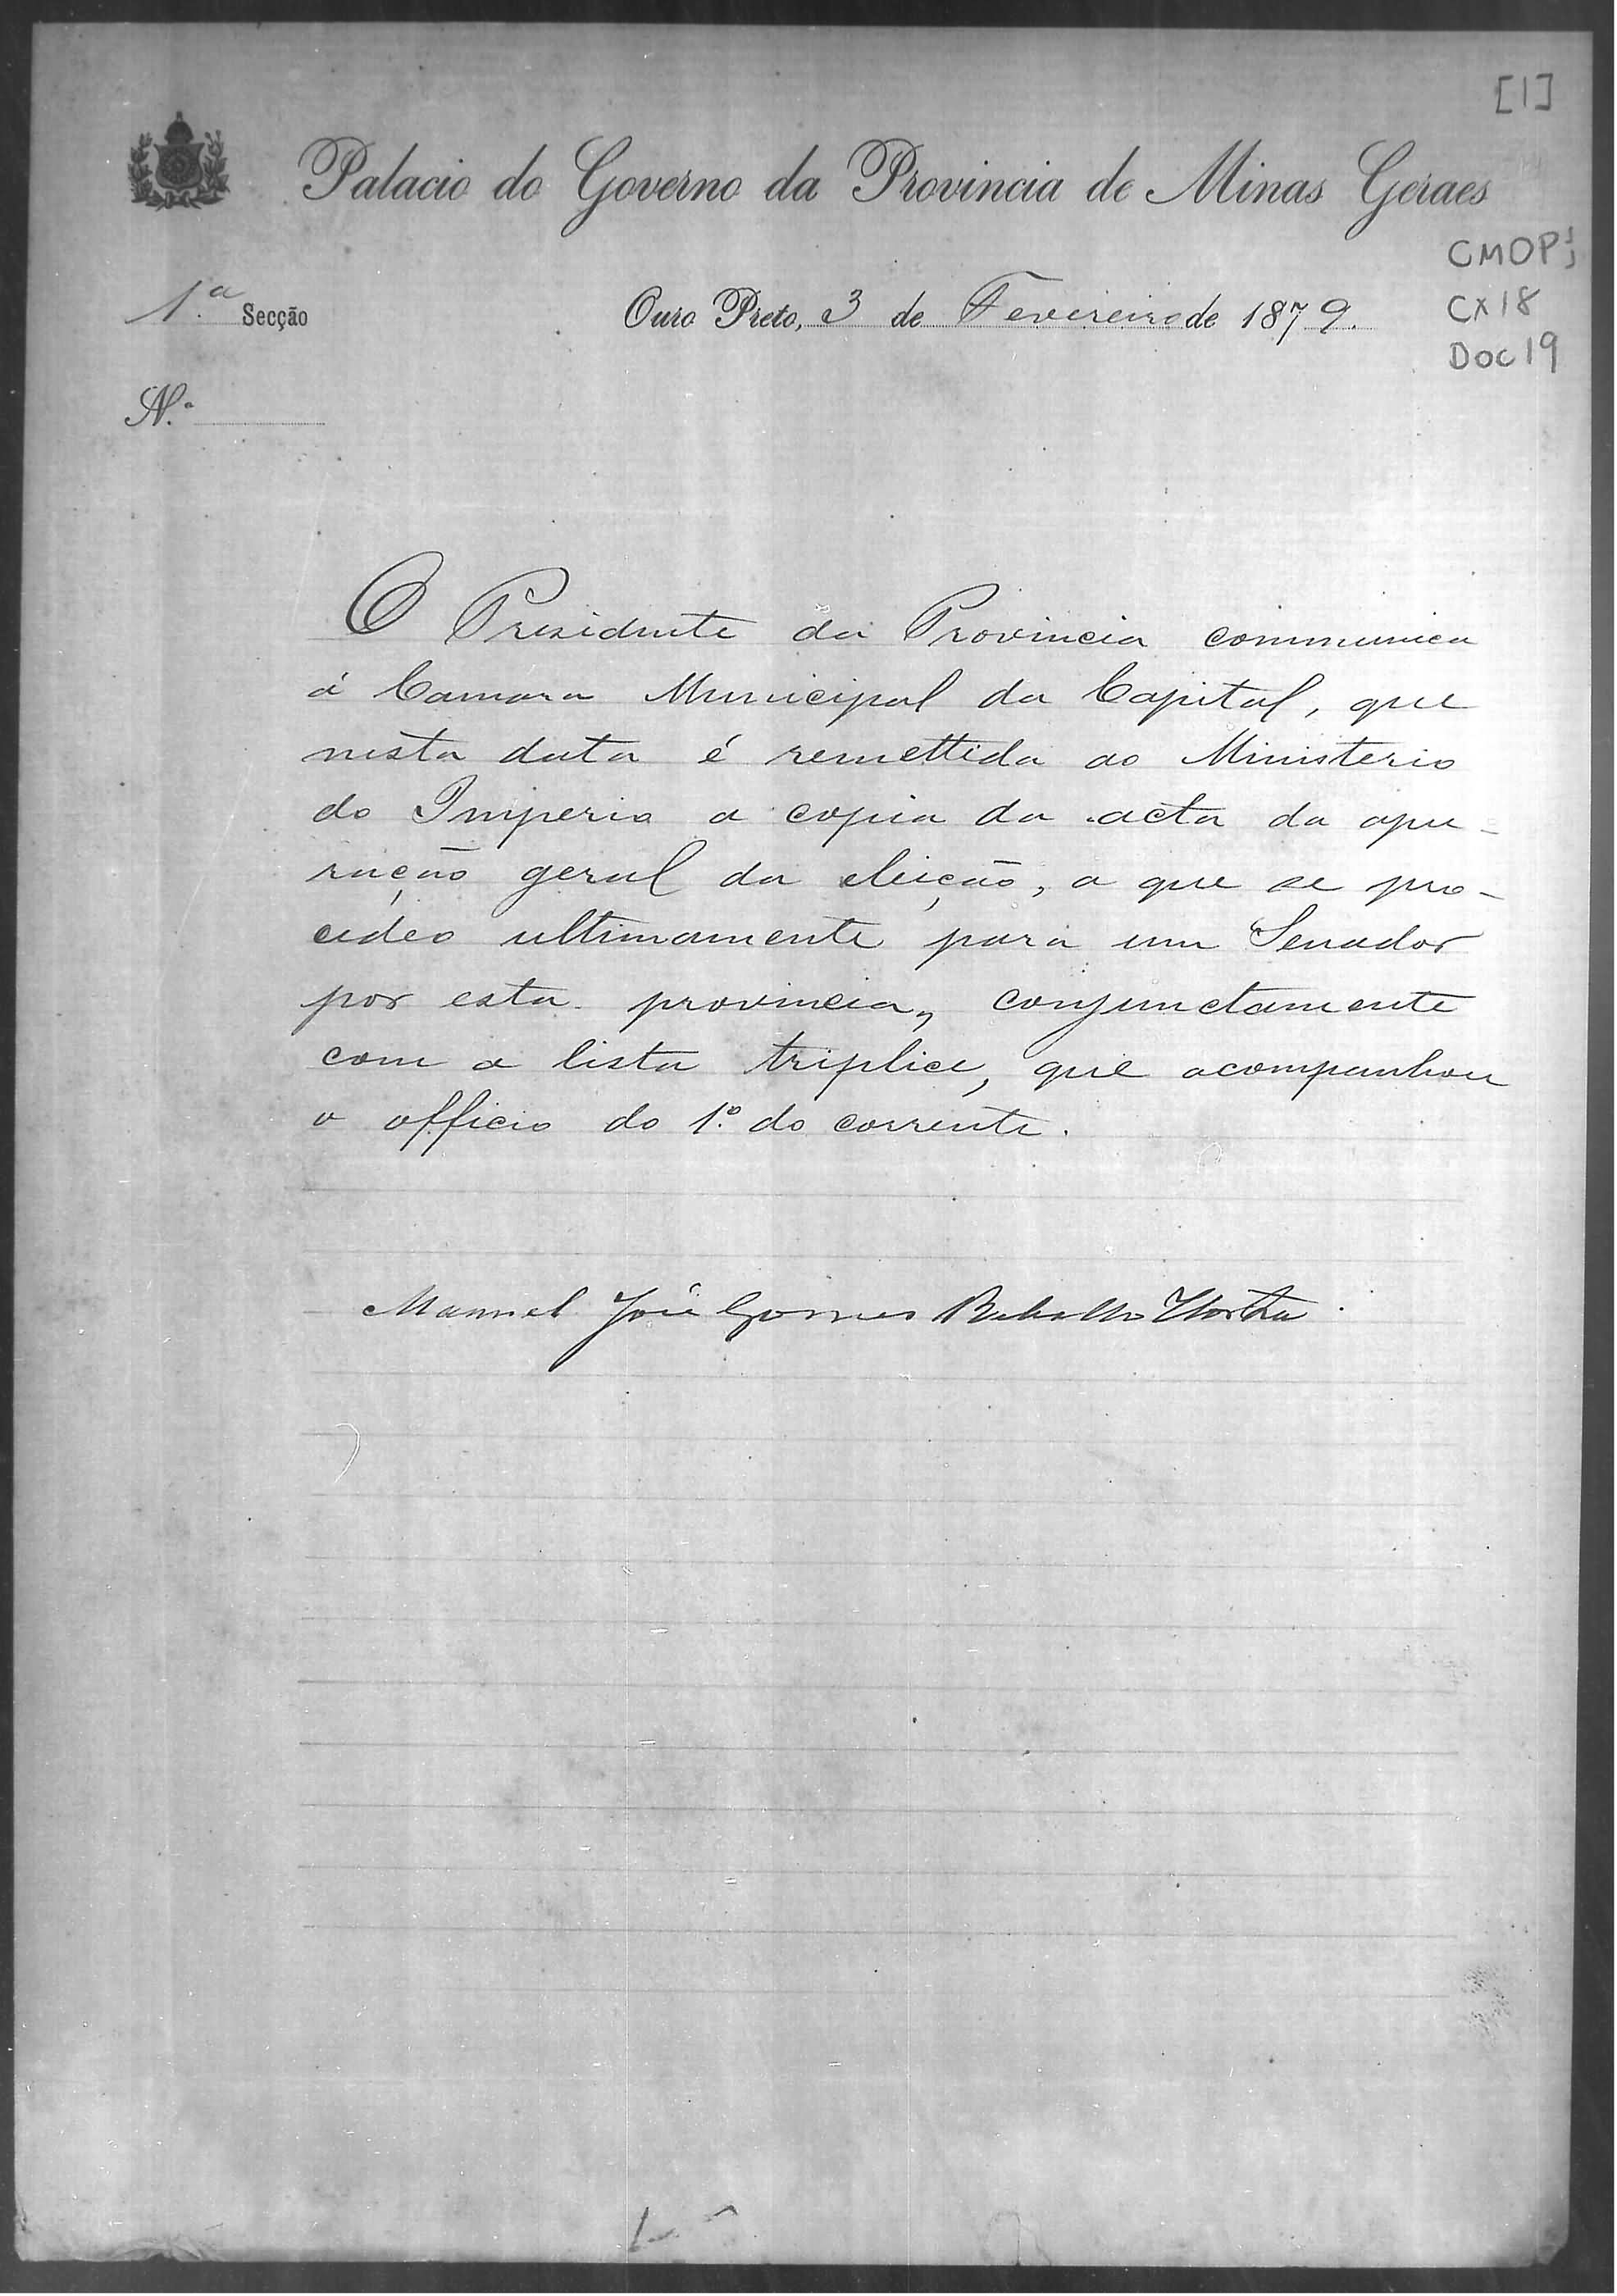 [1]
Palacio do Governo da Provincia de Minas Geraes
CMOP
1.ª Secção
Ouro Preto, 3 de Fevereiro de 1879.
CX18
Doc 19
N.º
O Presidente da Provincia communica
á Camara Municipal da Capital, que
nesta data é remettida ao Ministerio
do Imperio a copia da acta da apu-
ração geral da eleição, a que se pro-
cedeo ultimamente para um Senador
por esta provincia, conjunctamente
com a lista triplice, que acompanhou
o officio do 1.º do corrente.
Manuel José Gomes Rebello Horta